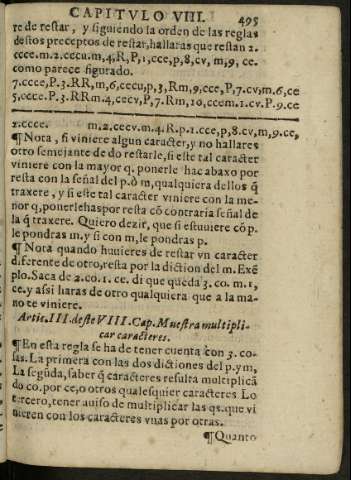 CAPITVLO VIII. 495
re de restar, y siguiendo la orden de las reglas
destos preceptos de restar, hallaras que restan 2.
ccce. m. 2. cecu. m, 4, R, P, 1, cce, p, 8, cv, m, 9, ce.
como parece figurado.
7. ccce, P. 3. RR, m, 6, cecu, p, 3, Rm, 9, cce, P, 7. cv, m. 6, ce
5, ccce. P. 3. RRm. 4, cecv, P, 7. Rm, 10, ccem. 1. cv. P. 9. ce
2. ccce. m. 2. cecv. m. 4. R. p. 1. cce, p, 8. cv, m, 9. ce,
¶Nota, si viniere algun caracter, y no hallares
otro semejante de do restarle, si este tal caracter
viniere con la mayor q. ponerle has abaxo por
resta con la señal del p. ò m, qualquiera dellos q̃
traxere, y si este tal caracter viniere con la me-
nor q, ponerlehas por resta cõ contraria señal de
la q̃ traxere. Quiero dezir, que si estuuiere cõ p.
le pondras m. y si con m, le pondras p.
¶Nota quando huuieres de restar vn caracter
diferente de otro, resta por la diction del m. Exẽ
plo. Saca de 2. co. 1. ce. di que queda 3. co. m. 1,
ce. y assi haras de otro qualquiera que a la ma-
no te viniere.
Artic. III. deste VIII. Cap. Muestra multipli-
car caracteres.
¶En esta regla se ha de tener cuenta con 3. co-
sas. La primera con las dos dictiones del p. y m,
La segũda, saber q̃ caracteres resulta multiplicã
do co. por ce, o otros qualesquier caracteres Lo
tercero, tener auiso de multiplicar las qs. que vi
nieren con los caracteres vnas por otras.
¶Quanto